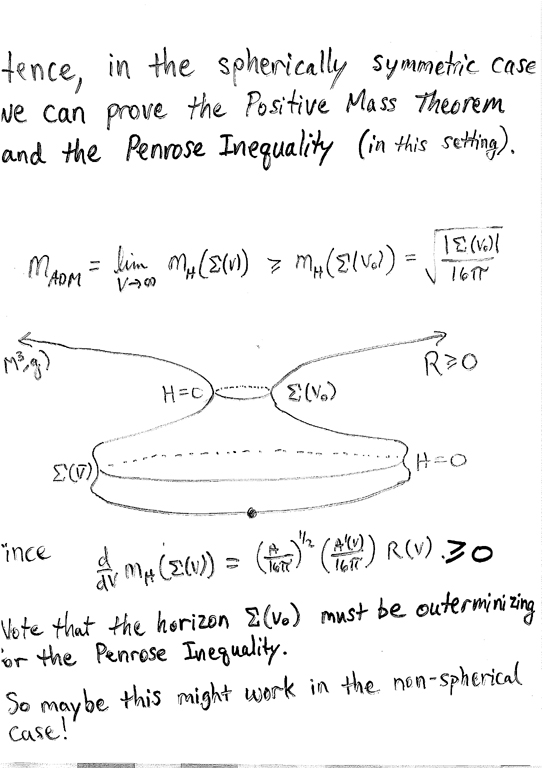 tence, in the spherically symmetric case
we can prove the Positive Mass Theorem
and the Penrose Inequality (in this setting).
m_ADM = lim_{V→∞} m_H(Σ(V)) ⩾ m_H(Σ(V₀)) = √(|Σ(V₀)| / 16π)
M³,g)
R ⩾ 0
H=0
Σ(V₀)
Σ(V̄)
H=0
ince d/dV m_H(Σ(V)) = (A/16π)^{1/2} (A'(V)/16π) R(V) . ⩾ 0
Note that the horizon Σ(V₀) must be outerminizing
or the Penrose Inequality.
So maybe this might work in the non-spherical
case!